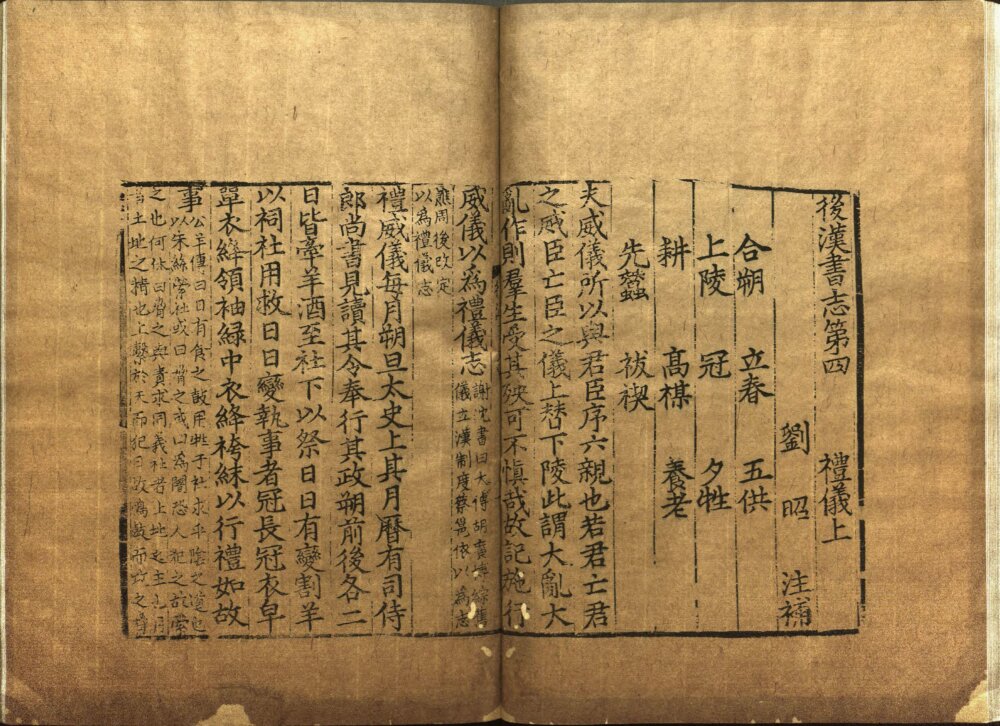 後漢書志第四 禮儀上
劉 昭 注補
合朔 立春 五供
上陵 冠 夕牲
耕 高禖 養老
先蠶 祓禊
夫威儀所以與君臣序六親也若君亡君
之威臣亡臣之儀上替下陵此謂大亂大
亂作則羣生受其殃可不慎哉故記施行
威儀以為禮儀志
謝沈書曰太傅胡廣博綜舊
儀立漢制度蔡邕依以為志
譙周後改定
以為禮儀志
禮威儀每月朔旦太史上其月曆有司侍
郎尚書見讀其令奉行其政朔前後各二
日皆牽羊酒至社下以祭日日有變割羊
以祠社用救日日變執事者冠長冠衣皁
單衣絳領袖緑中衣絳袴䋽以行禮如故
事
公羊傳曰日有食之鼓用牲于社求乎陰之道也
以朱絲營社或曰脅之或曰為闇恐人犯之故營
之也何休曰脅之與責求同義社者土地之主也月
者土地之精也上繫於天而犯日故鳴鼓而攻之脅